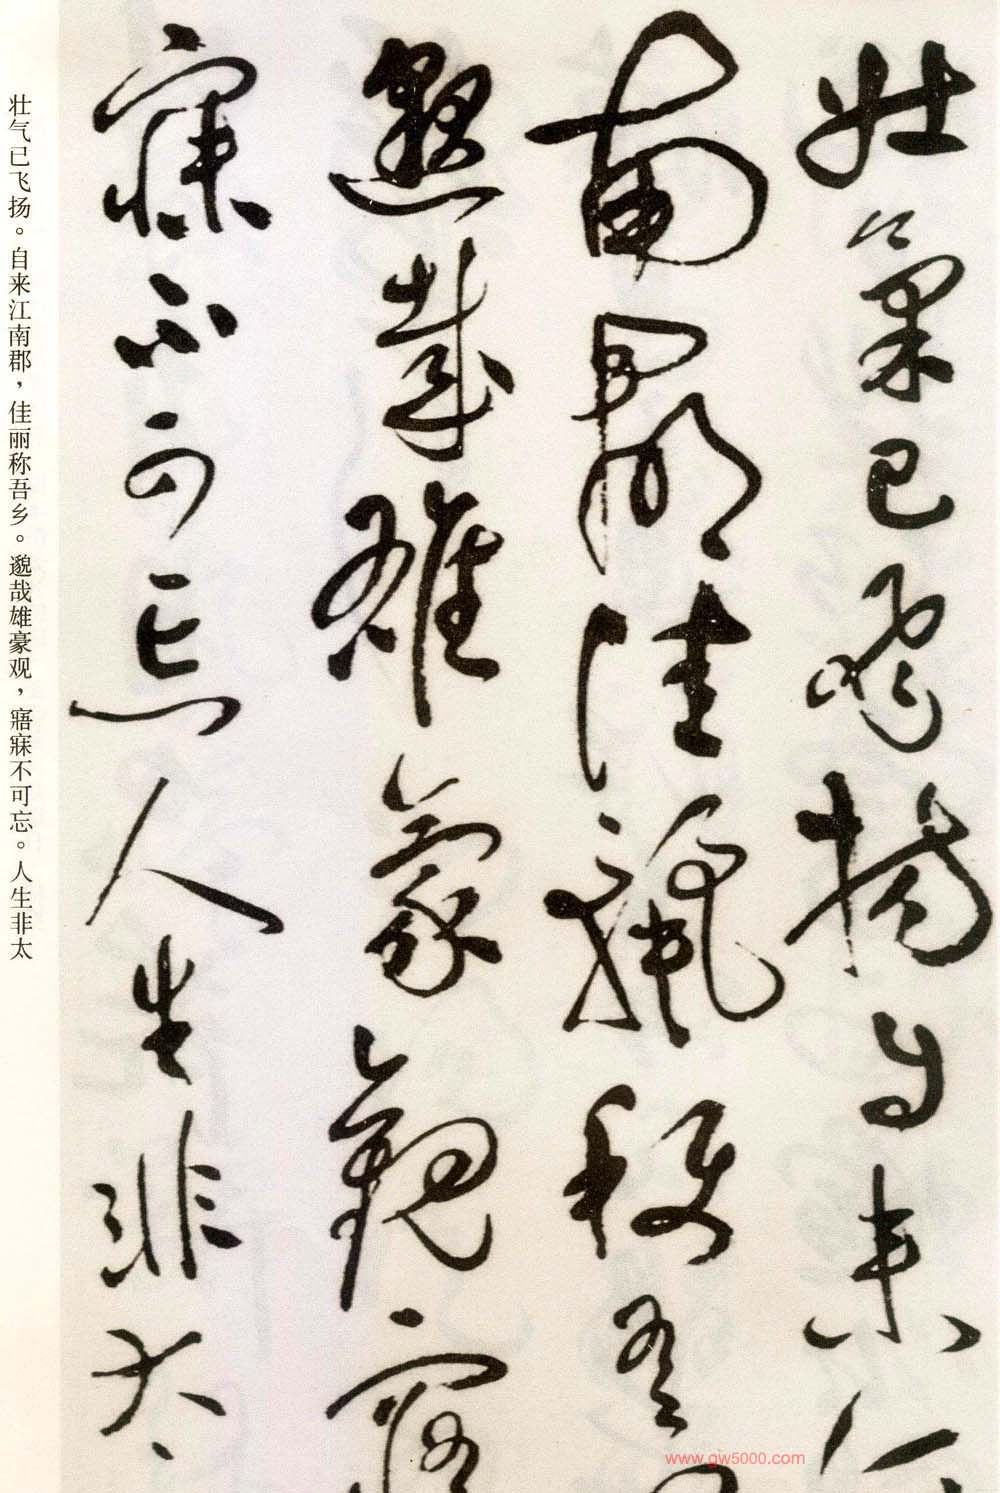 壮氣已飛揚自来江
南郡佳麗稱吾
邈哉雄豪觀寤
寐不可忘人生非太
壮气已飞扬。自来江南郡，佳丽称吾乡。邈哉雄豪观，寤寐不可忘。人生非太
www.gw5000.com